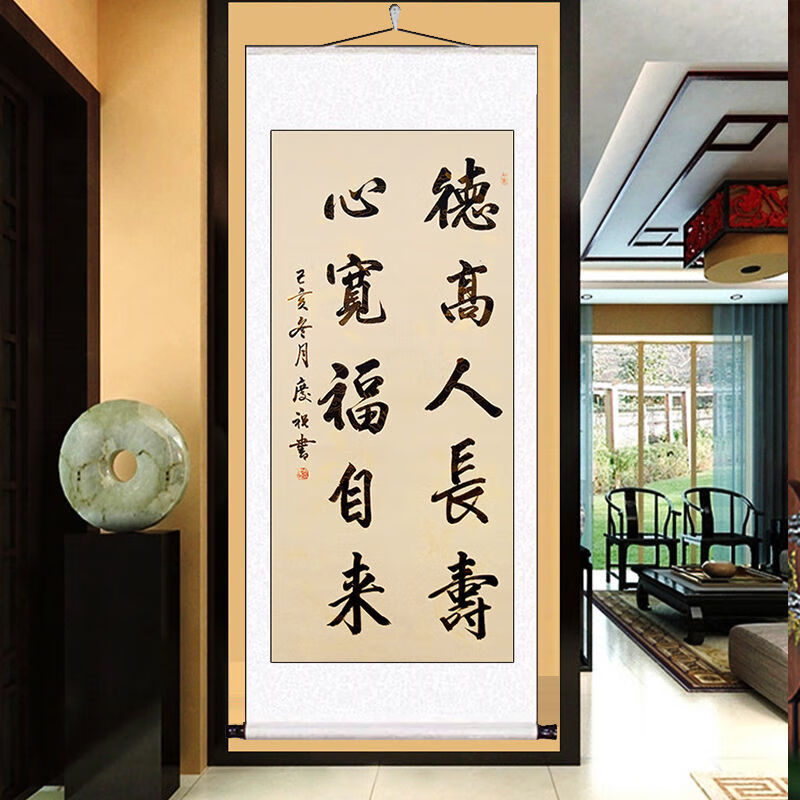 德高人長壽
心寬福自来
己亥冬月慶祝書